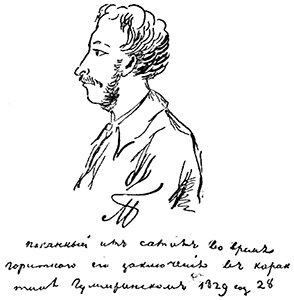 писанный имъ самимъ во время
горестного его заключенія въ каран
тинѣ Гумранскомъ 1829 год 28